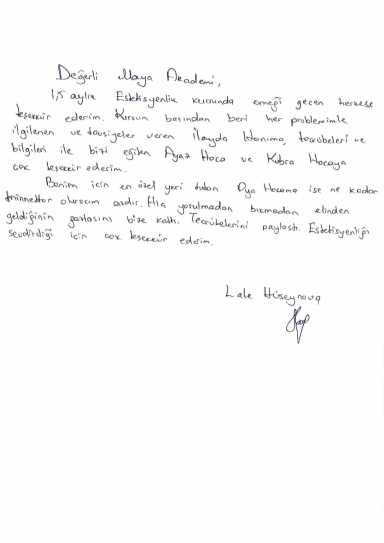 Değerli Maya Akademi,
1,5 aylık Estetisyenlik kursunda emeği geçen herkese
teşekkür ederim. Kursun başından beri her problemimle
ilgilenen ve tavsiyeler veren İlayda Hanıma, tecrübeleri ve
bilgileri ile bizi eğiten Ayaz Hoca ve Kübra Hocaya
çok teşekkür ederim.
Benim için en özel yeri tutan Oya Hocama ise ne kadar
minnettar olursam azdır. Hiç yorulmadan bıkmadan elinden
geldiğinin fazlasını bize kattı. Tecrübelerini paylaştı. Estetisyenliği
sevdirdiği için çok teşekkür ederim.
Lale Hüseynova